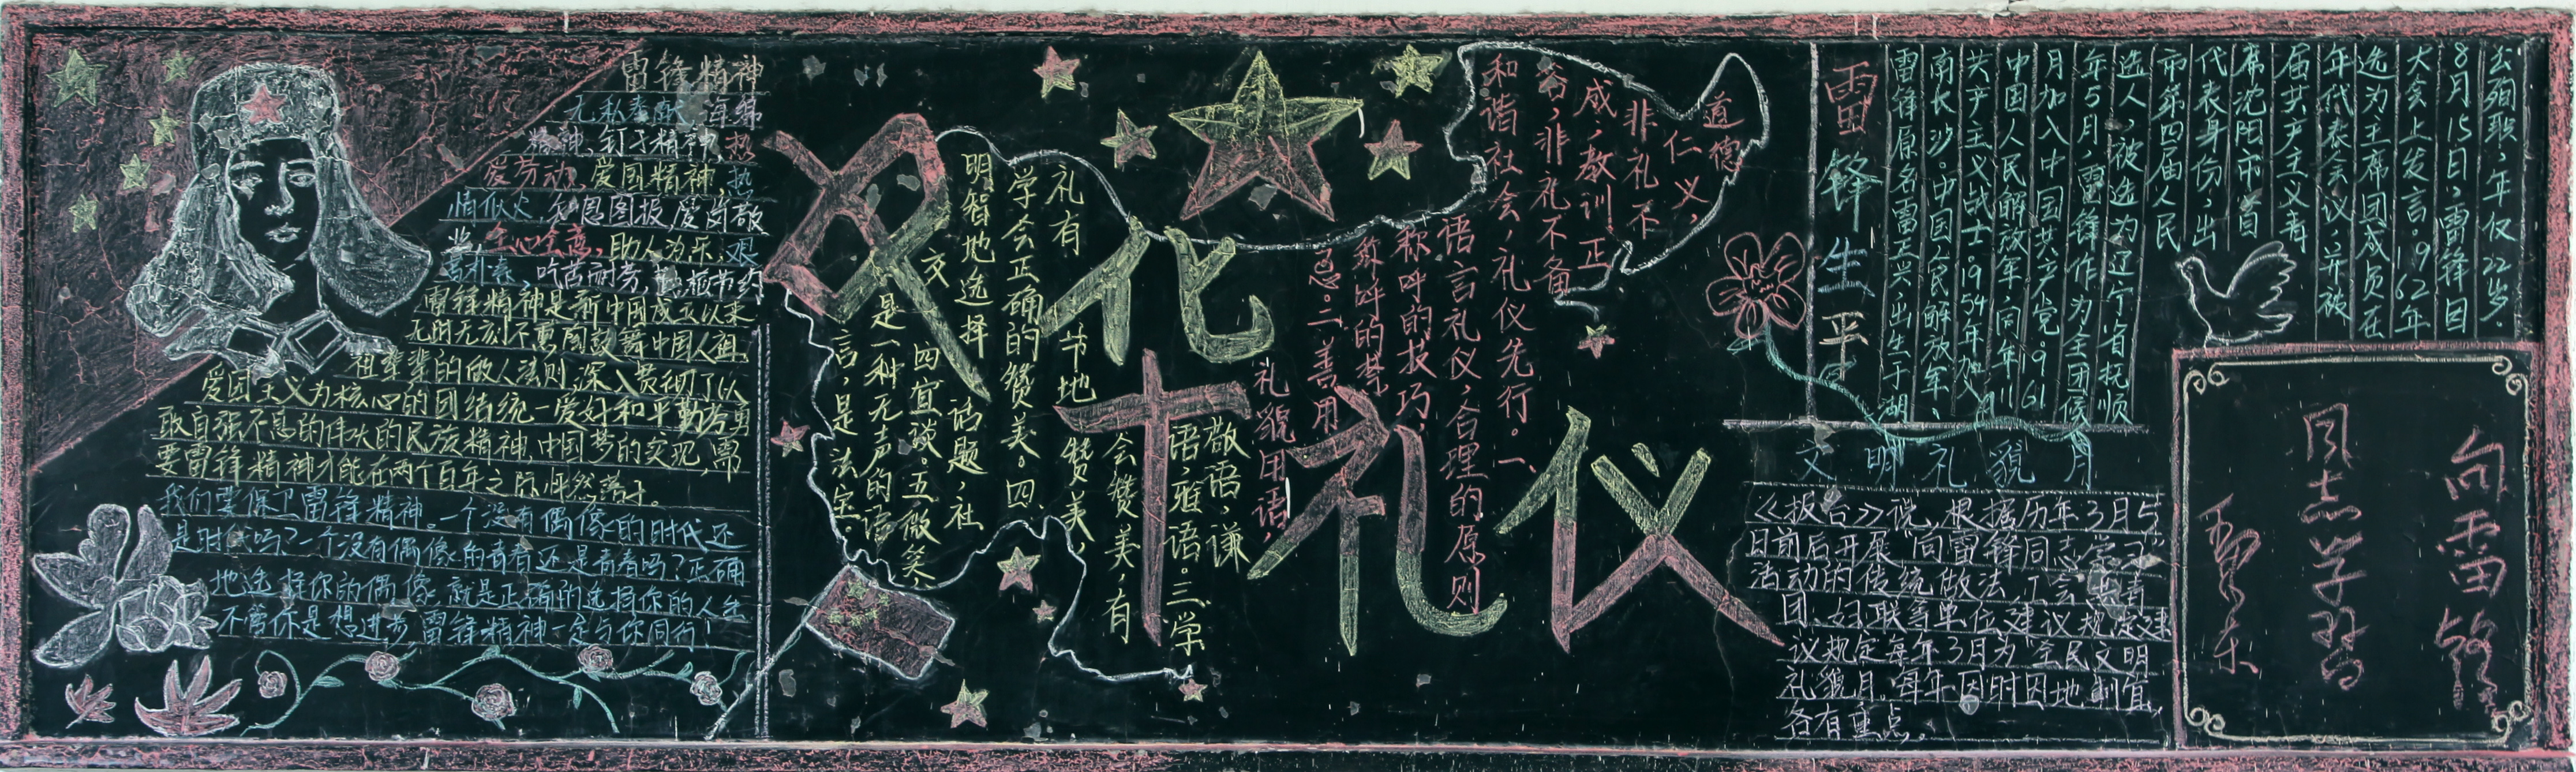 雷锋精神
无私奉献
精神,钉子精神,热
爱劳动,爱国精神,热
情似火,知恩图报,爱岗敬
业,全心全意,助人为乐,艰
苦朴素,吃苦耐劳,勤俭节约
雷锋精神是新中国成立以来
无时无刻不再鼓舞中国人
祖辈辈的做人法则,深入贯彻了以
爱国主义为核心的团结统一爱好和平勤劳勇
敢自强不息的伟大的民族精神,中国梦的实现,需
要雷锋精神才能在两个百年之际
我们要保卫雷锋精神。一个没有偶像的时代还
是时代吗?一个没有偶像的青春还是青春吗?正确
地选择你的偶像,就是正确的选择你的人生
不管你是想进步 雷锋精神一定与你同行!
文化
十礼仪
道德
仁义,
非礼不
成,教训正
容,非礼不备
和谐社会,礼仪先行。一、
语言礼仪,合理的原则
称呼的技巧,
称呼的禁
忌。二、善用
礼貌用语,
敬语,谦
语,雅语。三、学
会赞美,有
礼有 节地 赞美,
学会正确的赞美。四、
明智地选择 话题,社
交 四宜谈。五、微笑,
是一种无声的语
言,是法宝。
雷锋生平
雷锋原名雷正兴,出生于湖
南长沙。中国人民解放军、
共产主义战士。1954年加入
中国人民解放军,同年11
月加入中国共产党。1961
年5月,雷锋作为全团候
选人,被选为辽宁省抚顺
市第四届人民
代表身份,出
席沈阳市首
届共产主义者
年代表会议,并被
选为主席团成员在
大会上发言。1962年
8月15日,雷锋因
公殉职,年仅22岁。
文明礼貌月
《报告》说,根据历年3月5
日前后开展“向雷锋同志学习”
活动的传统做法,工会、共青
团、妇联等单位建议规定建
议规定每年3月为“全民文明
礼貌月。每年因时因地制宜,
各有重点。
向雷锋
同志学习
毛泽东